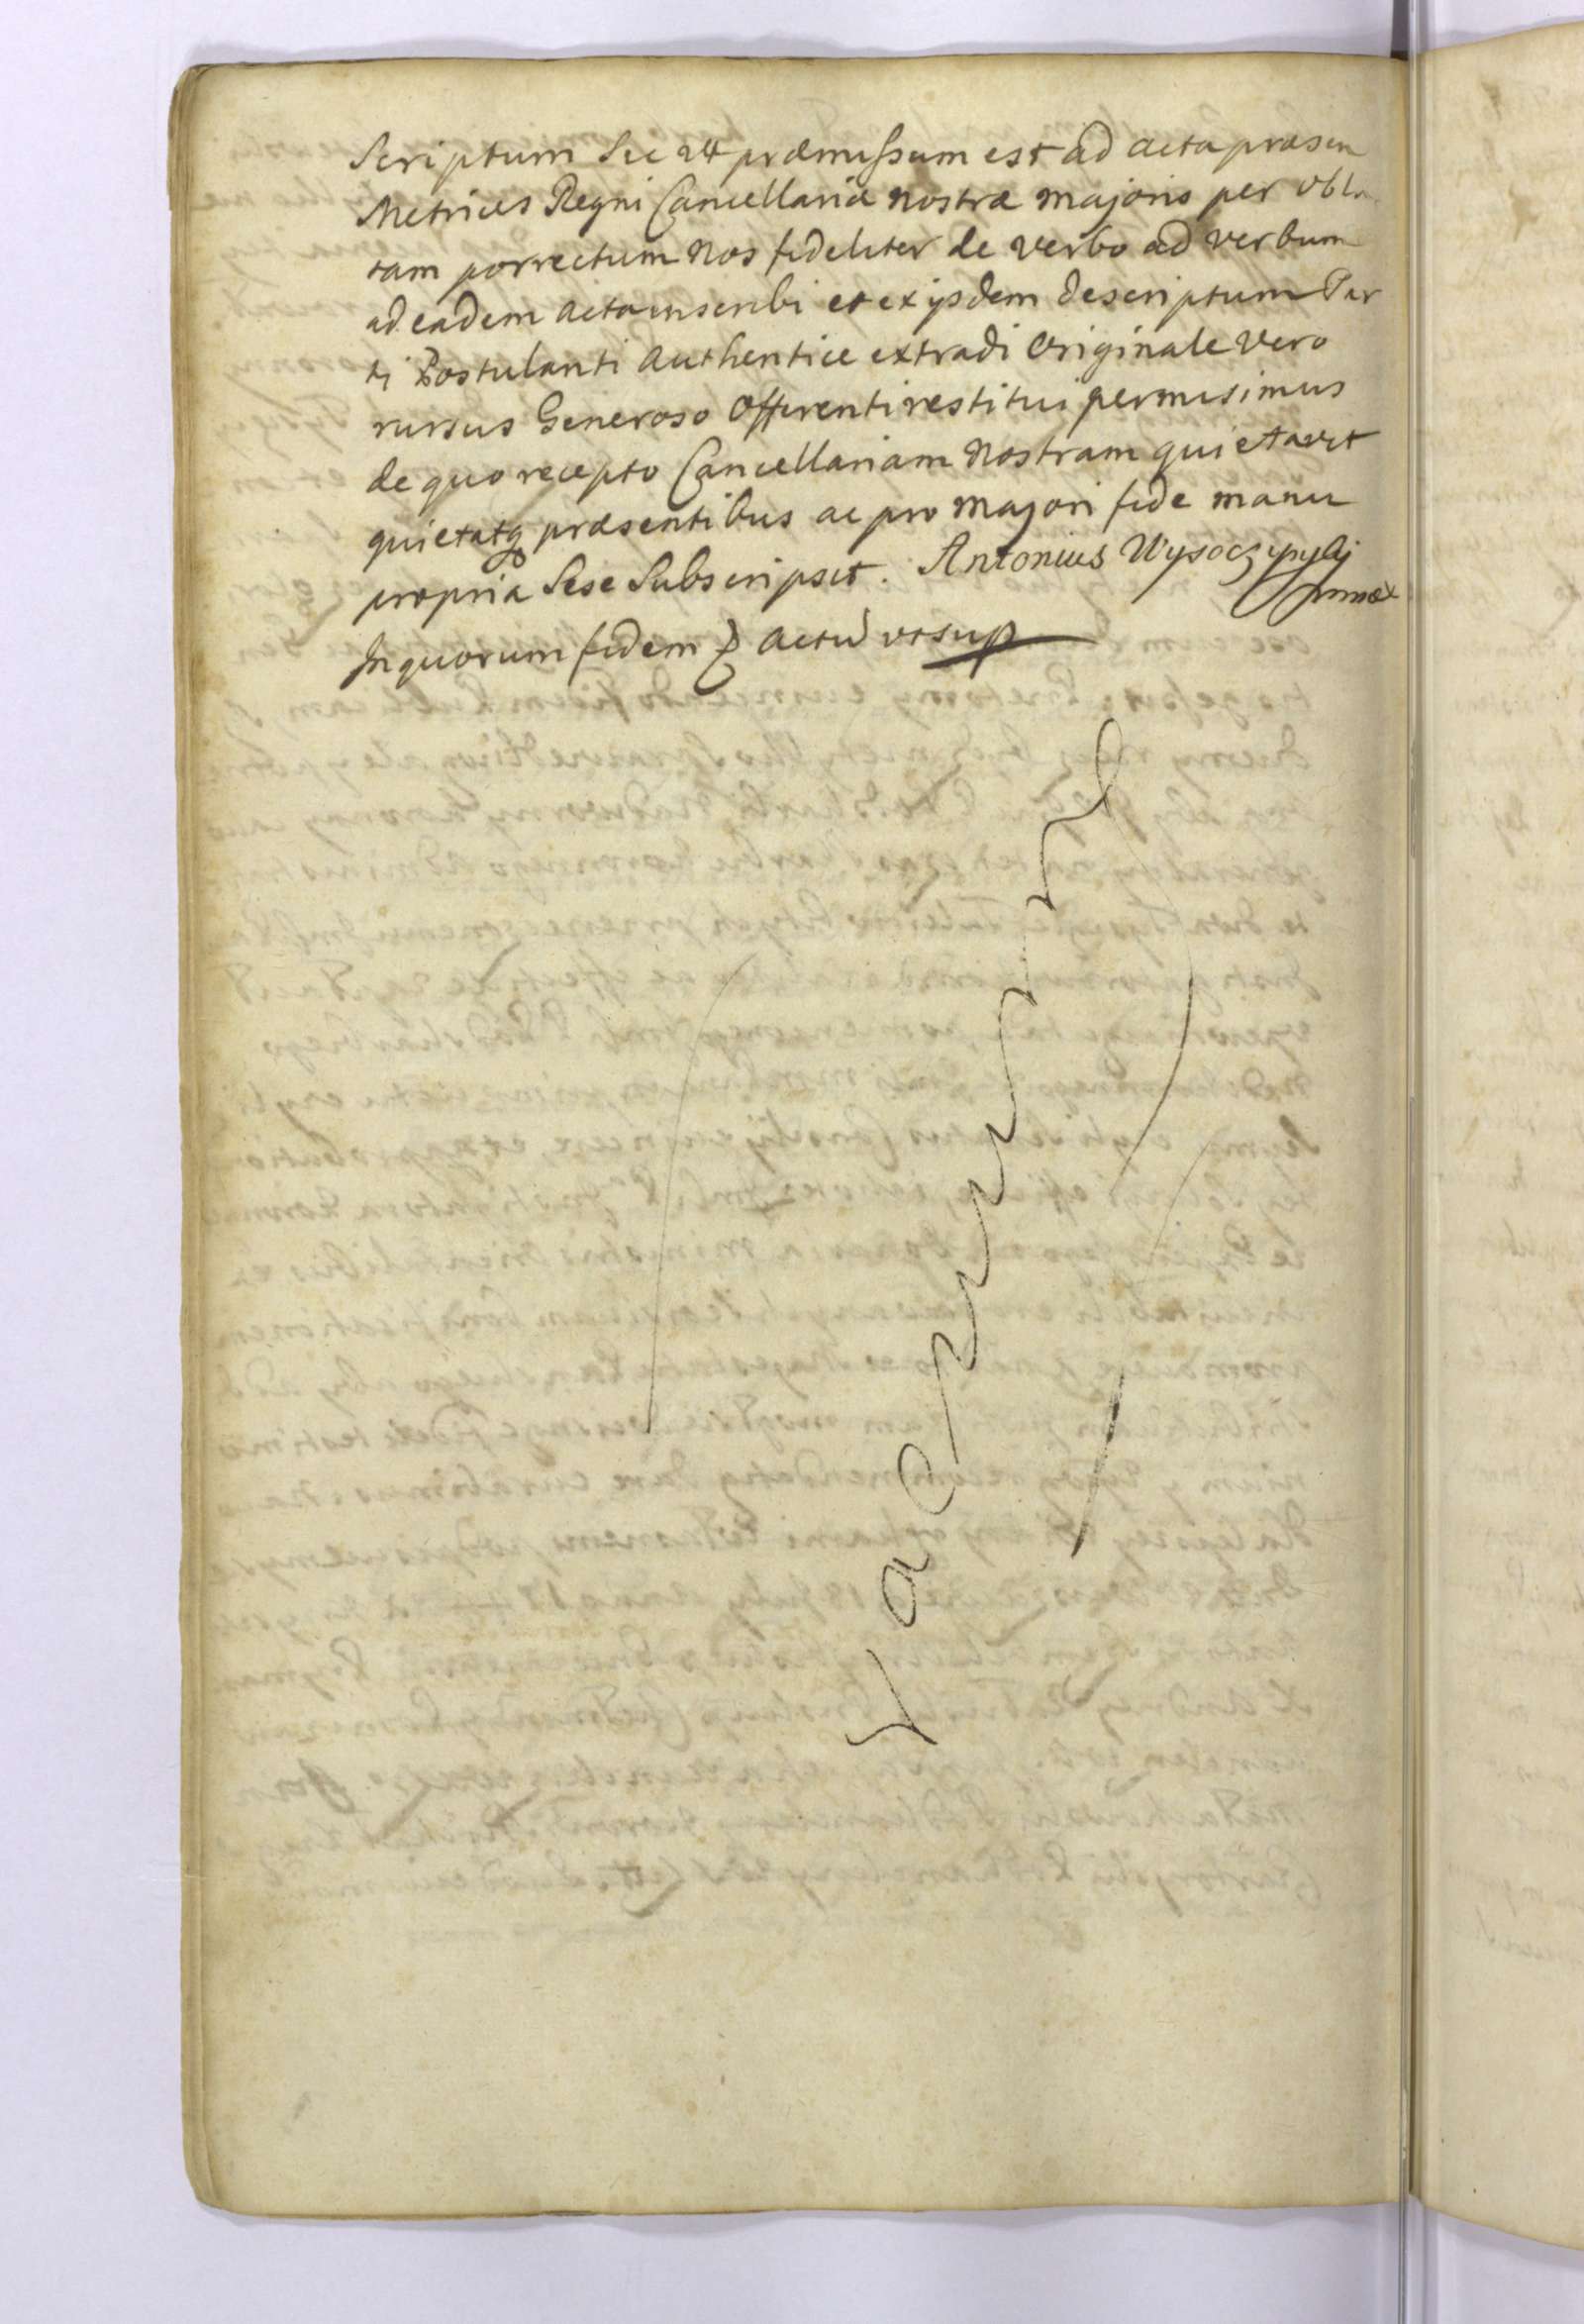 Scriptum Sic utt præmissum est ad acta præsen
Metrices Regni Cancellariæ nostræ majoris per obla
tam porrectum Nos fideliter de verbo ad verbum
ad eadem acta inscribi et ex ijsdem descriptum Par
ti Postulanti authentice extradi Originale vero
rursus Generoso Offerenti restitui permisimus
de quo recepto Cancellariam Nostram quietavit
quietatq præsentibus ac pro majori fide manu
propria Sese Subscripsit. Antonius
In quorum fidem actu ut sup
Vacuum